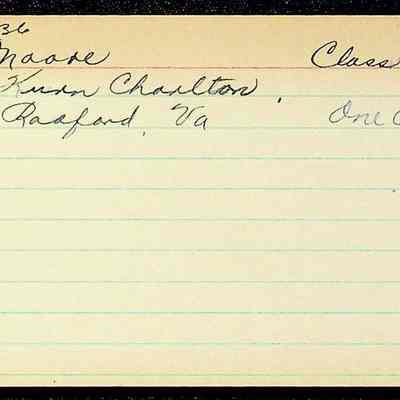 36
Moore Class
Charlton
Radford, Va One